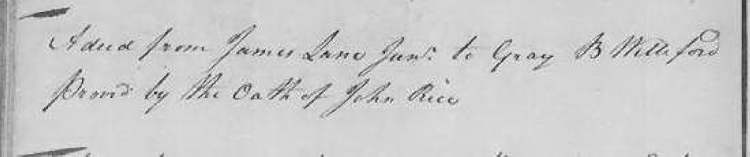 A deed from James Lane Junr. to Gray B Williford
Provd. by the Oath of John Rice